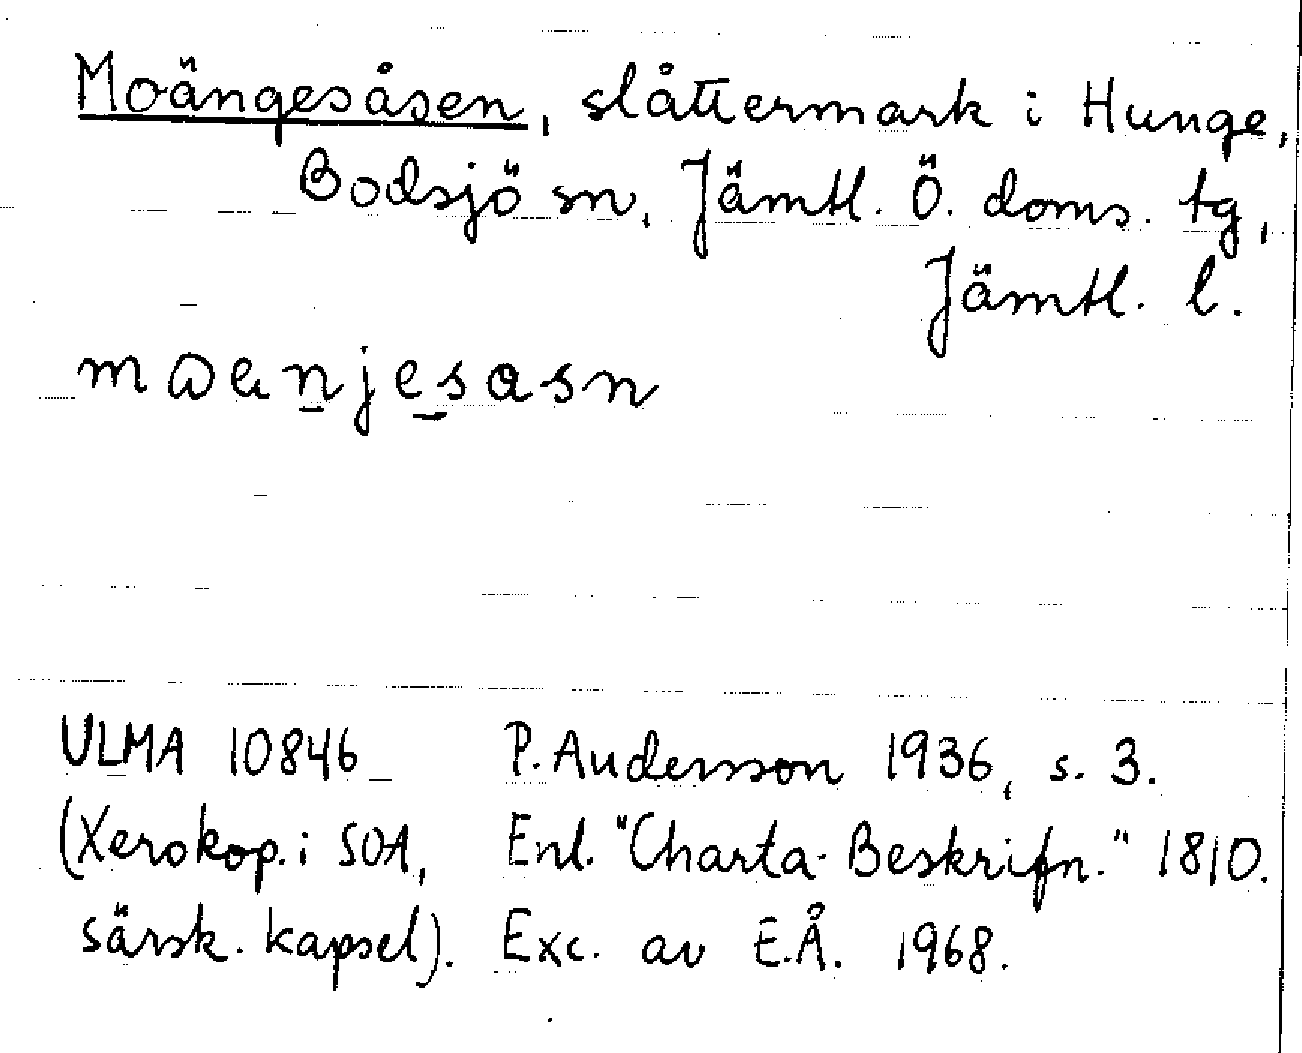 Moängesåsen, slåttermark i Hunge,
Bodsjö sn, Jämtl. Ö. doms. tg,
Jämtl. l.
ULMA 10846 P. Andersson 1936, s. 3.
(Xerokop. i SOA, Enl. "Charta-Beskrifn." 1810.
särsk. kapsel). Exc. av E.Å. 1968.